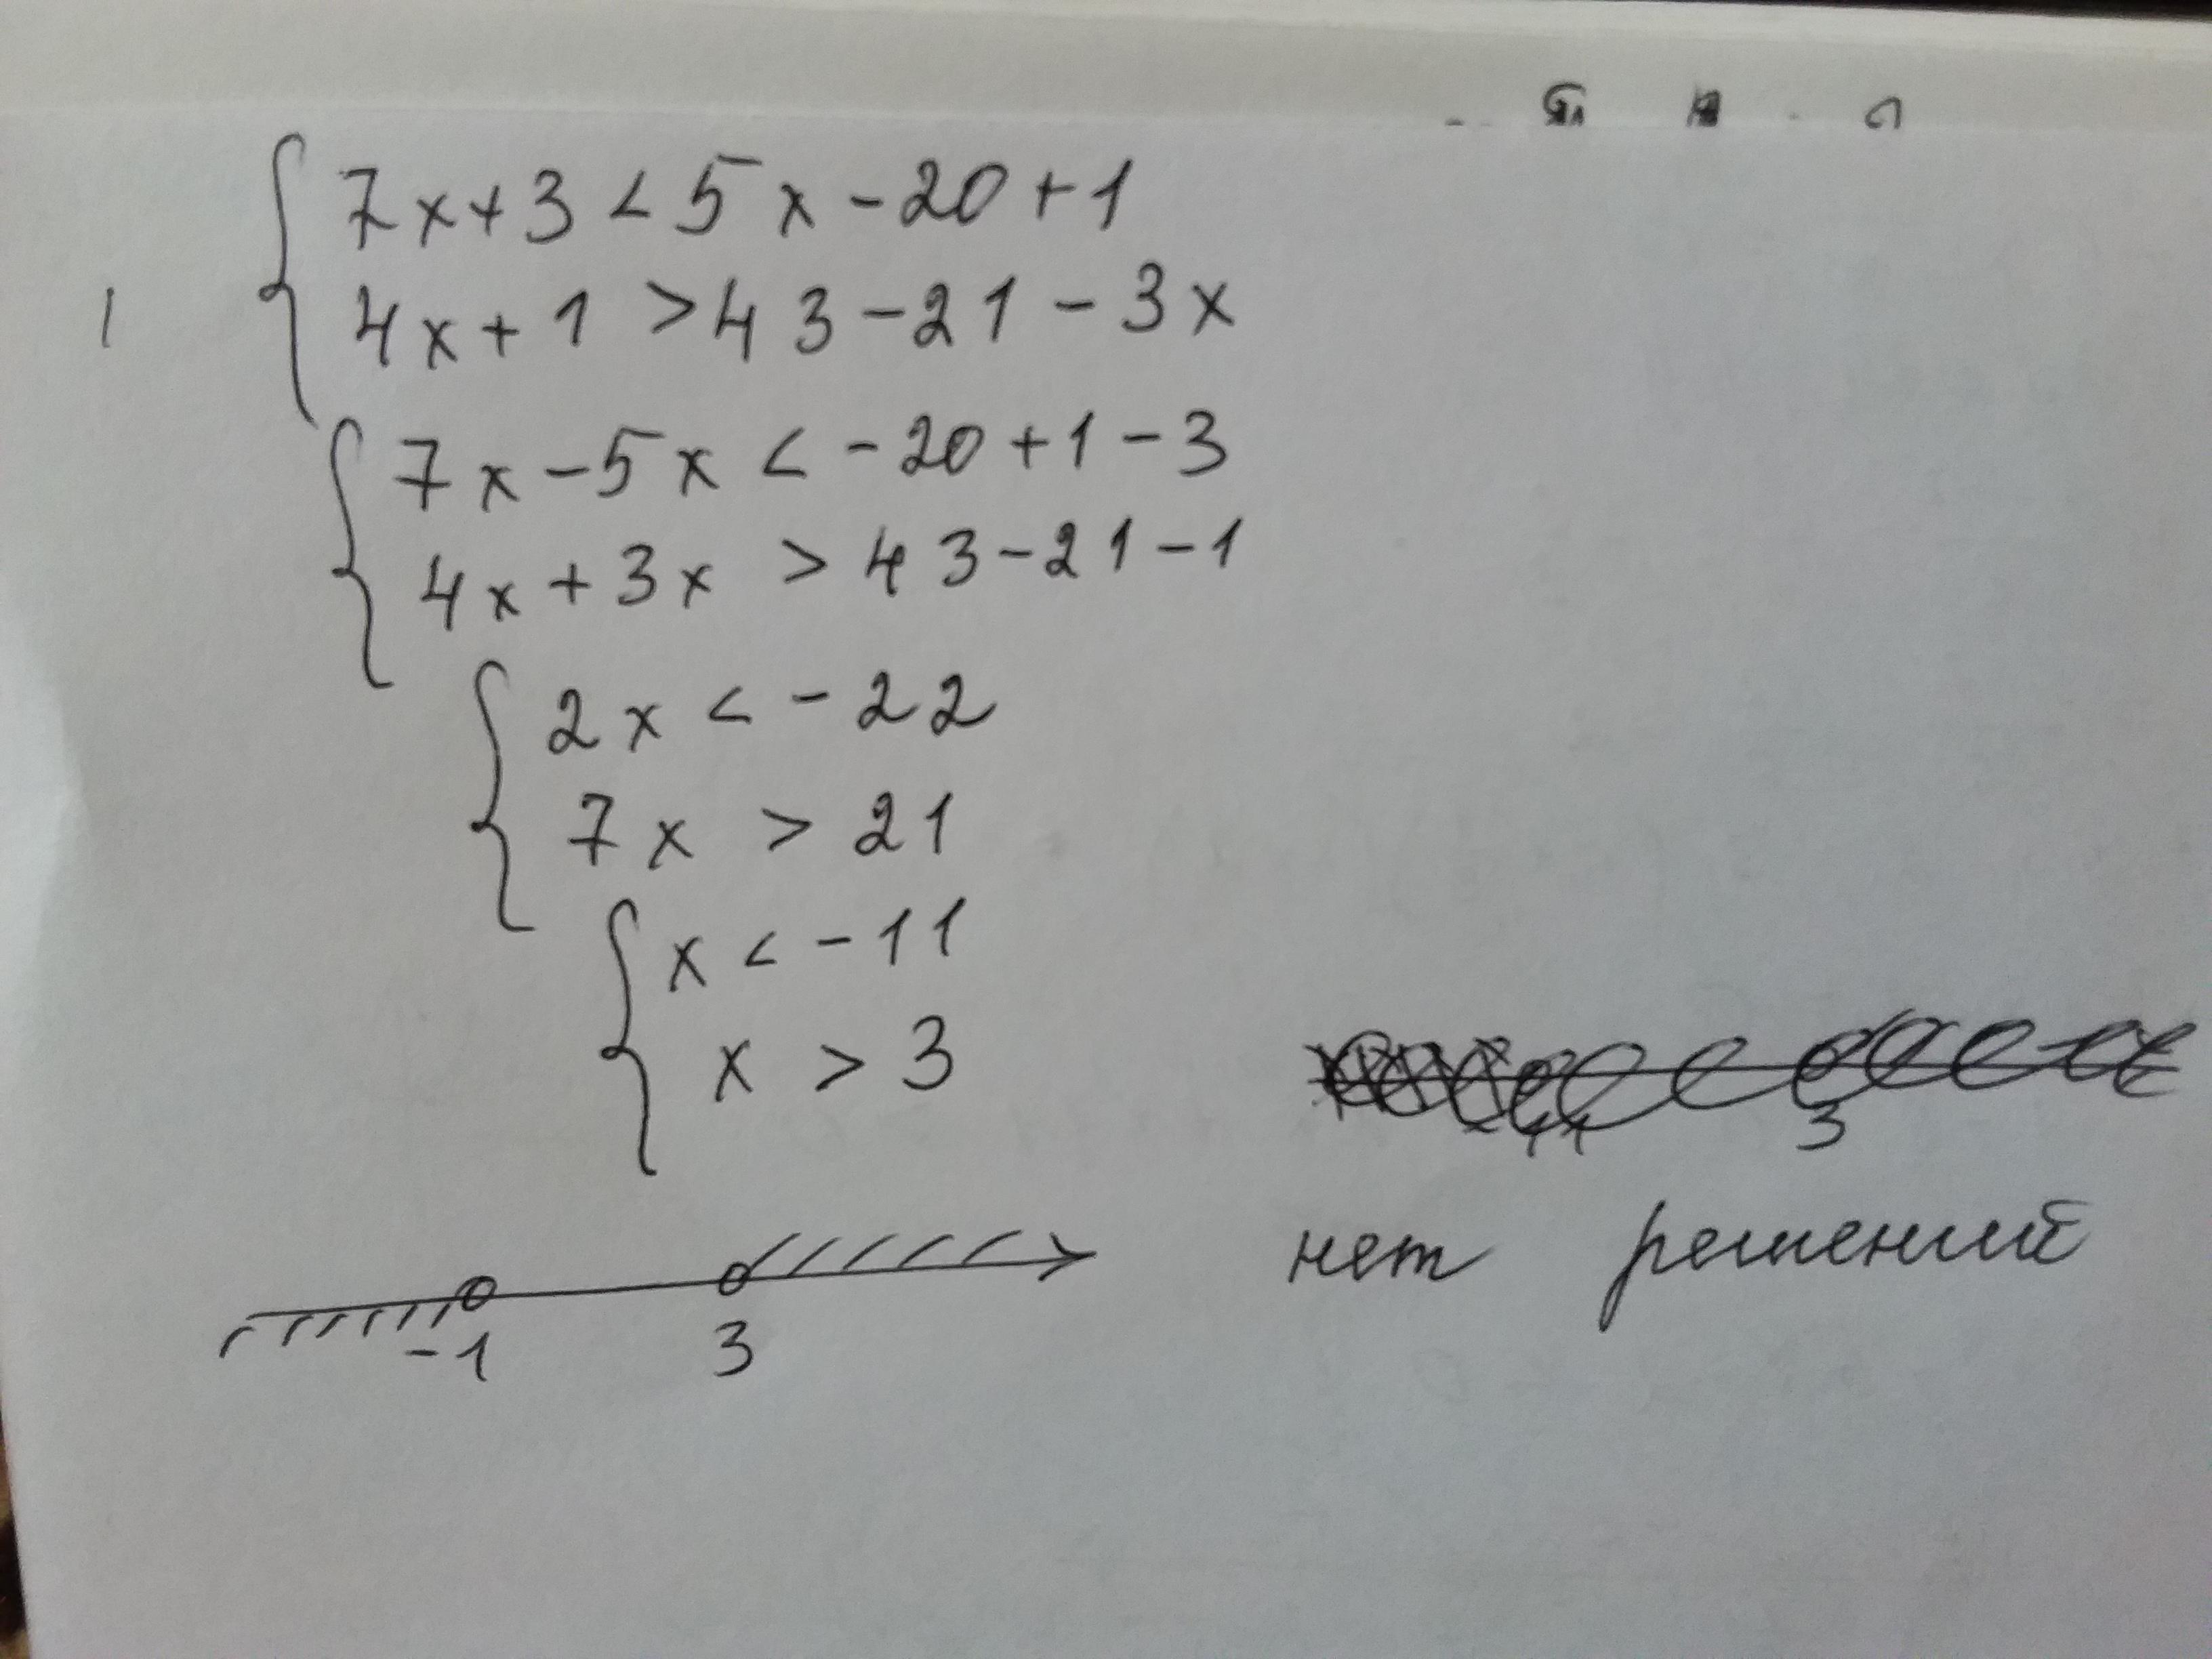 7x+3<5x-20+1
4x+1>43-21-3x
7x-5x<-20+1-3
4x+3x>43-21-1
2x<-22
7x>21
x<-11
x>3
3
-1 3
нет решений